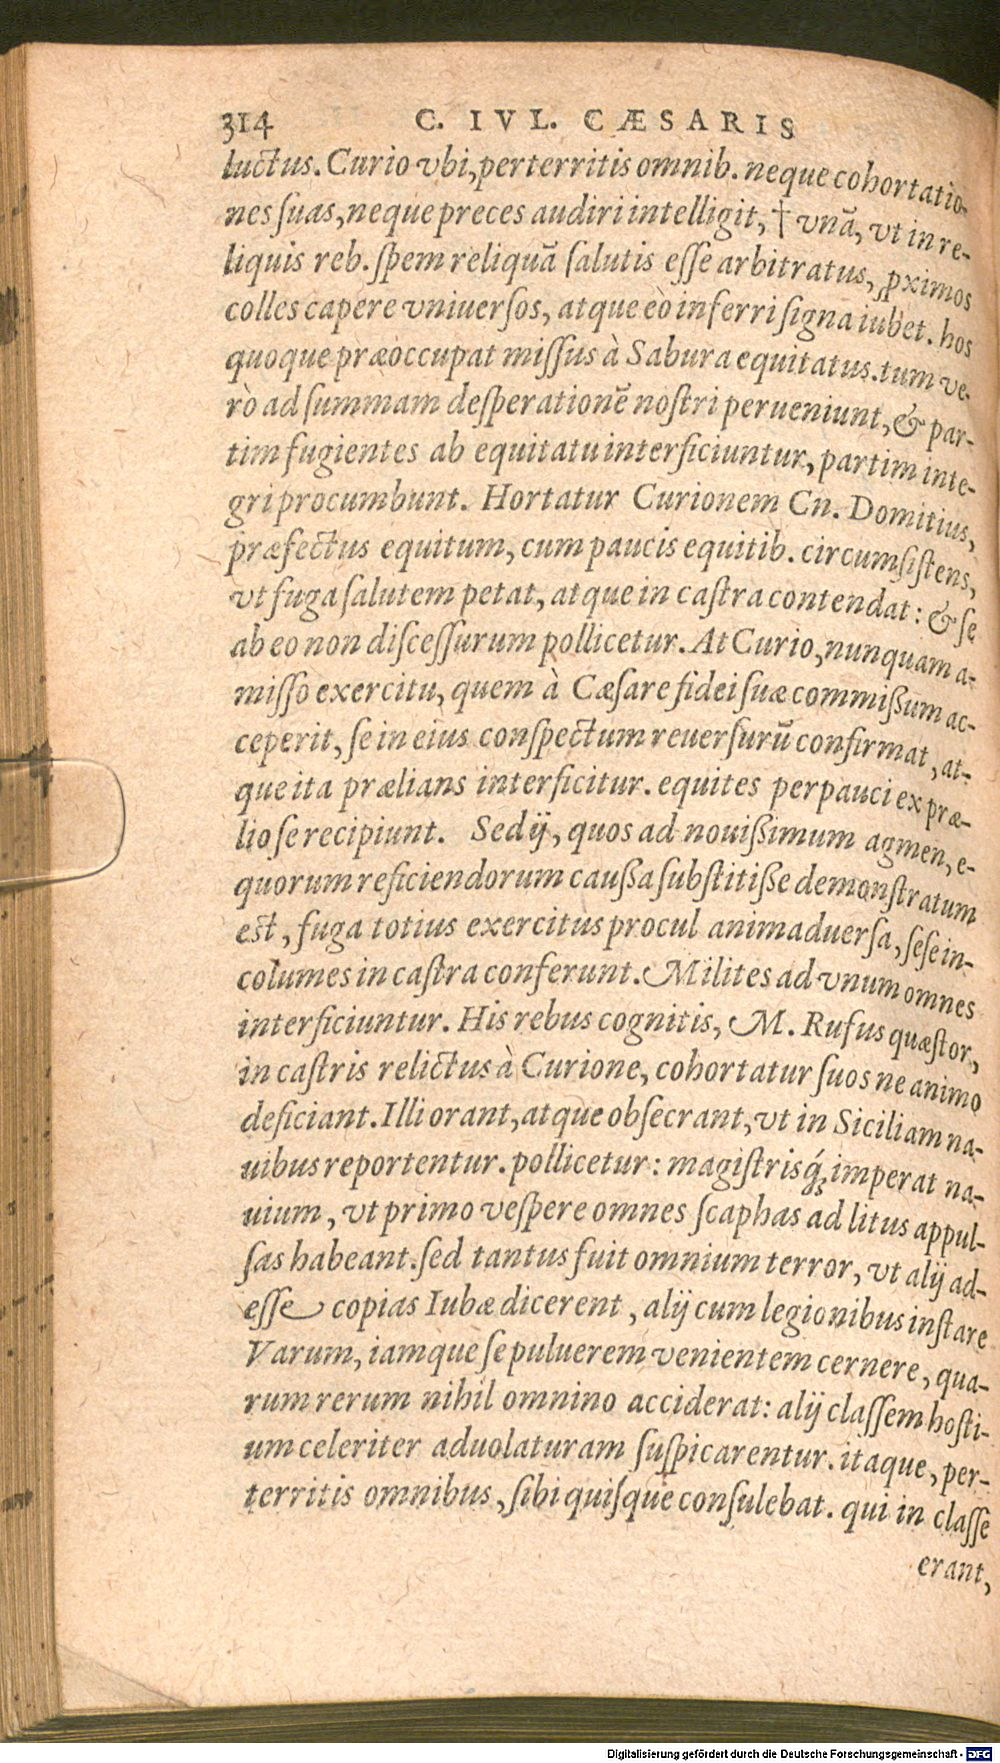 314 C. IVL. CÆSARIS
luctus. Curio vbi, perterritis omnib. neque cohortatio-
nes ſuas, neque preces audiri intelligit, † vnā, vt in re-
liquis reb. ſpem reliquā ſalutis eſſe arbitratus, ꝓximos
colles capere vniuerſos, atque eò inferri ſigna iubet. hos
quoque præoccupat miſſus à Sabura equitatus. tum ve-
rò ad ſummam deſperationē noſtri perueniunt, & par-
tim fugientes ab equitatu interficiuntur, partim inte-
gri procumbunt. Hortatur Curionem Cn. Domitius,
præfectus equitum, cum paucis equitib. circumſiſtens,
vt fuga ſalutem petat, atque in caſtra contendat: & ſe
ab eo non diſceſſurum pollicetur. At Curio, nunquam a-
miſſo exercitu, quem à Cæſare fidei ſuæ commißum ac-
ceperit, ſe in eius conſpectum reuerſurū confirmat, at-
que ita prælians interficitur. equites perpauci ex præ-
lio ſe recipiunt. Sed ij, quos ad nouißimum agmen, e-
quorum reficiendorum caußa ſubſtitiße demonſtratum
est, fuga totius exercitus procul animaduerſa, ſeſe in-
columes in caſtra conferunt. Milites ad vnum omnes
interficiuntur. His rebus cognitis, M. Rufus quæſtor,
in caſtris relictus à Curione, cohortatur ſuos ne animo
deficiant. Illi orant, atque obſecrant, vt in Siciliam na-
uibus reportentur. pollicetur: magiſtrisq́; imperat na-
uium, vt primo veſpere omnes ſcaphas ad litus appul-
ſas habeant. ſed tantus fuit omnium terror, vt alij ad-
eſſe copias Iubæ dicerent, alij cum legionibus inſtare
Varum, iamque ſe puluerem venientem cernere, qua-
rum rerum nihil omnino acciderat: alij claſſem hoſti-
um celeriter aduolaturam ſuſpicarentur. itaque, per-
territis omnibus, ſibi quiſque conſulebat. qui in claſſe
erant,
Digitalisierung gefördert durch die Deutsche Forschungsgemeinschaft - DFG